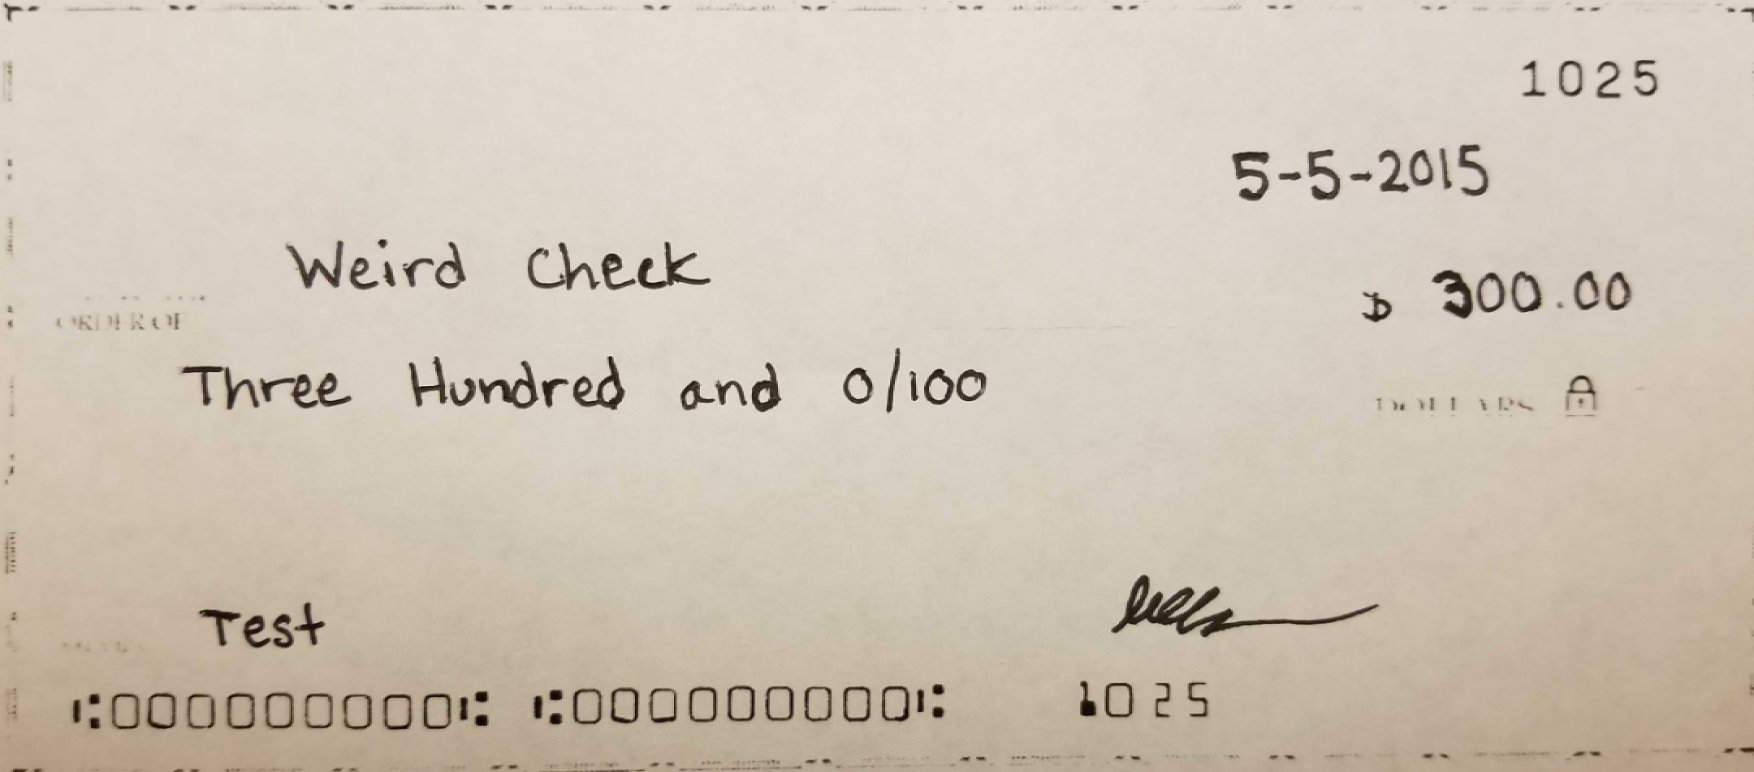 1025
5-5-2015
Weird Check
ORDER OF
300.00
Three Hundred and 0/100
DOLLARS
Test
⑆000000000⑆ ⑆000000000⑆ 1025